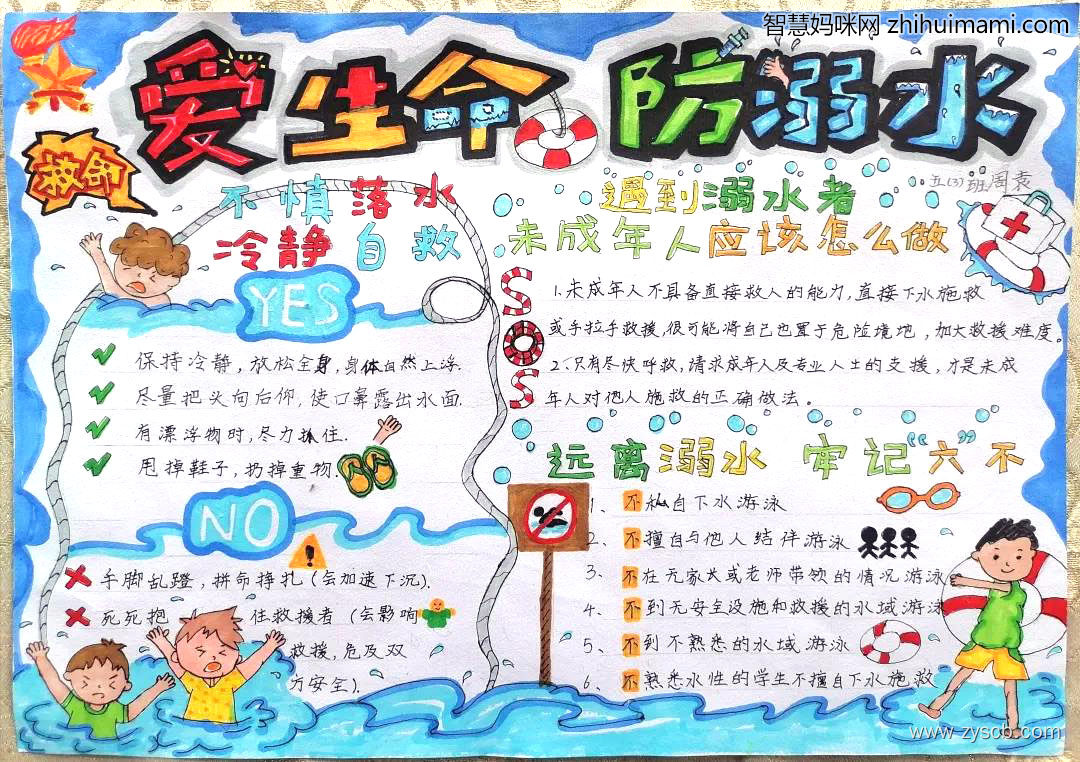 智慧妈咪网 zhihuimami.com
爱生命 防溺水
救命
五(3)班周袁
不慎落水
冷静自救
YES
保持冷静,放松全身,身体自然上浮.
尽量把头向后仰,使口鼻露出水面.
有漂浮物时,尽力抓住.
甩掉鞋子,扔掉重物.
NO
手脚乱蹬,拼命挣扎(会加速下沉).
死死抱住救援者(会影响
救援,危及双
方安全).
遇到溺水者
未成年人应该怎么做
SOS
1.未成年人不具备直接救人的能力,直接下水施救
或手拉手救援,很可能将自己也置于危险境地,加大救援难度。
2.只有尽快呼救,请求成年人及专业人士的支援,才是未成
年人对他人施救的正确做法。
远离溺水 牢记“六”不
1、不私自下水游泳
2、不擅自与他人结伴游泳
3、不在无家长或老师带领的情况游泳
4、不到无安全设施和救援的水域游泳
5、不到不熟悉的水域游泳
6、不熟悉水性的学生不擅自下水施救
www.zyscb.com